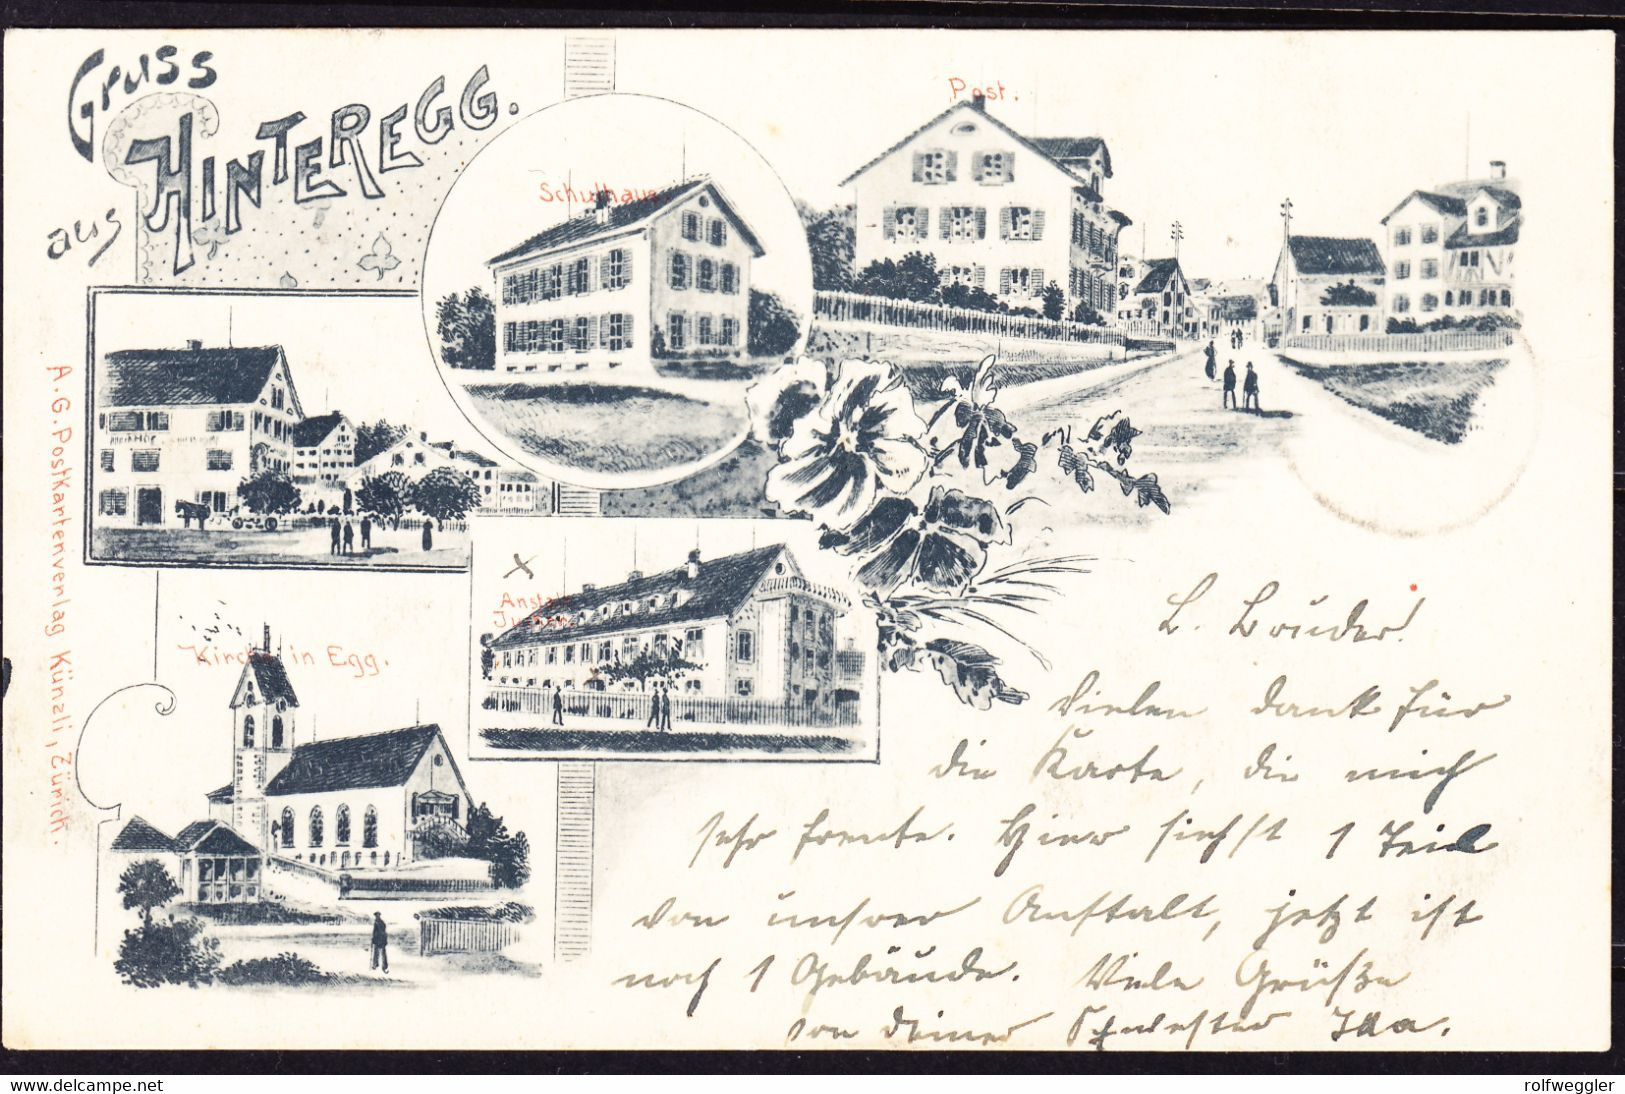 Gruss
aus HINTEREGG.
Post.
Schulhaus.
Kirche in Egg.
A.G. Postkartenverlag Künzli, Zürich.
L. Bruder!
Vielen Dank für
die Karte, die mich
sehr freute. Hier siehst 1 Teil
von unserer Anstalt, jetzt ist
noch 1 Gebäude. Viele Grüße
von deiner Schwester Ida.
delcampe.net
rolfweggler